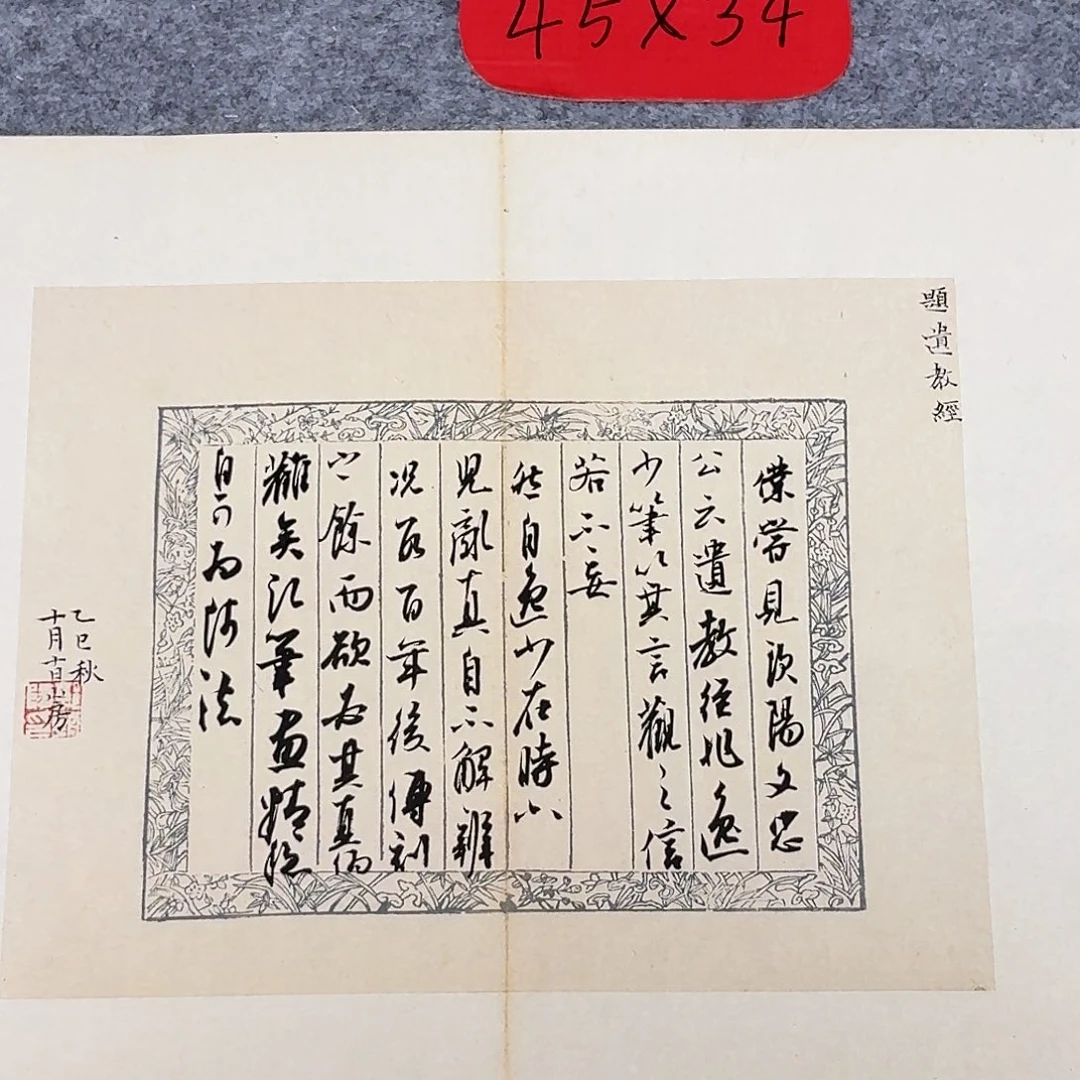 45X34
題遺教經
僕嘗見歐陽文忠
公云遺教經非逸
少筆以其言觀之信
若不妄
然自逸少在時小
兒亂真自不解辨
況數百年後傳刻
之餘而欲必其真偽
難矣顧筆畫精穩
自可為師法
乙巳秋
十月